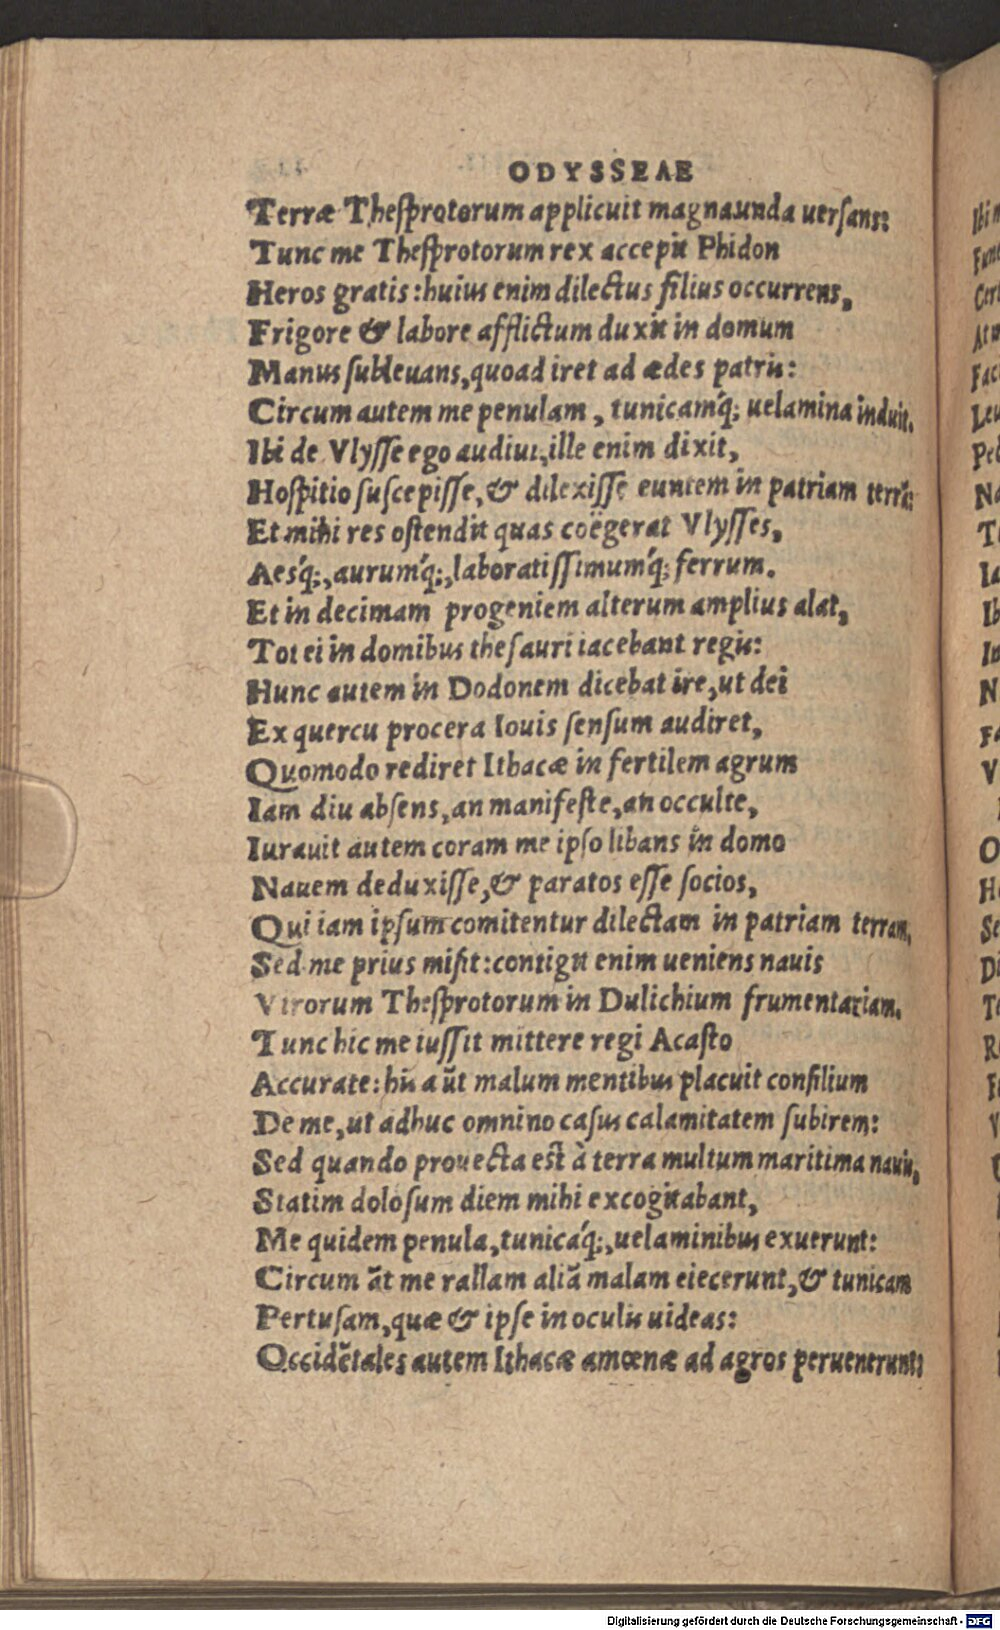 ODYSSEAE
Terræ Theſprotorum applicuit magna unda uerſans:
Tunc me Theſprotorum rex accepit Phidon
Heros gratis: huius enim dilectus filius occurrens,
Frigore & labore afflictum duxit in domum
Manus ſubleuans, quoad iret ad ædes patris:
Circum autem me penulam, tunicamq́; uelamina induit.
Ibi de Vlyſſe ego audiui, ille enim dixit,
Hoſpitio ſuſcepiſſe, & dilexiſſe euntem in patriam terrã:
Et mihi res oſtendit quas coëgerat Vlyſſes,
Aesq́;, aurumq́;, laboratiſſimumq́; ferrum.
Et in decimam progeniem alterum amplius alat,
Tot ei in domibus theſauri iacebant regis:
Hunc autem in Dodonem dicebat ire, ut dei
Ex quercu procera Iouis ſenſum audiret,
Quomodo rediret Ithacæ in fertilem agrum
Iam diu abſens, an manifeſte, an occulte,
Iurauit autem coram me ipſo libans in domo
Nauem deduxiſſe, & paratos eſſe ſocios,
Qui iam ipſum comitentur dilectam in patriam terram,
Sed me prius miſit: contigit enim ueniens nauis
Virorum Theſprotorum in Dulichium frumentariam.
Tunc hic me iuſſit mittere regi Acaſto
Accurate: his aũt malum mentibus placuit conſilium
De me, ut adhuc omnino caſus calamitatem ſubirem:
Sed quando prouecta eſt à terra multum maritima nauis,
Statim doloſum diem mihi excogitabant,
Me quidem penula, tunicaq́;, uelaminibus exuerunt:
Circum ãt me rallam aliã malam eiecerunt, & tunicam
Pertuſam, quæ & ipſe in oculis uideas:
Occidẽtales autem Ithacæ amœnæ ad agros peruenerunt:
Digitalisierung gefördert durch die Deutsche Forschungsgemeinschaft - DFG